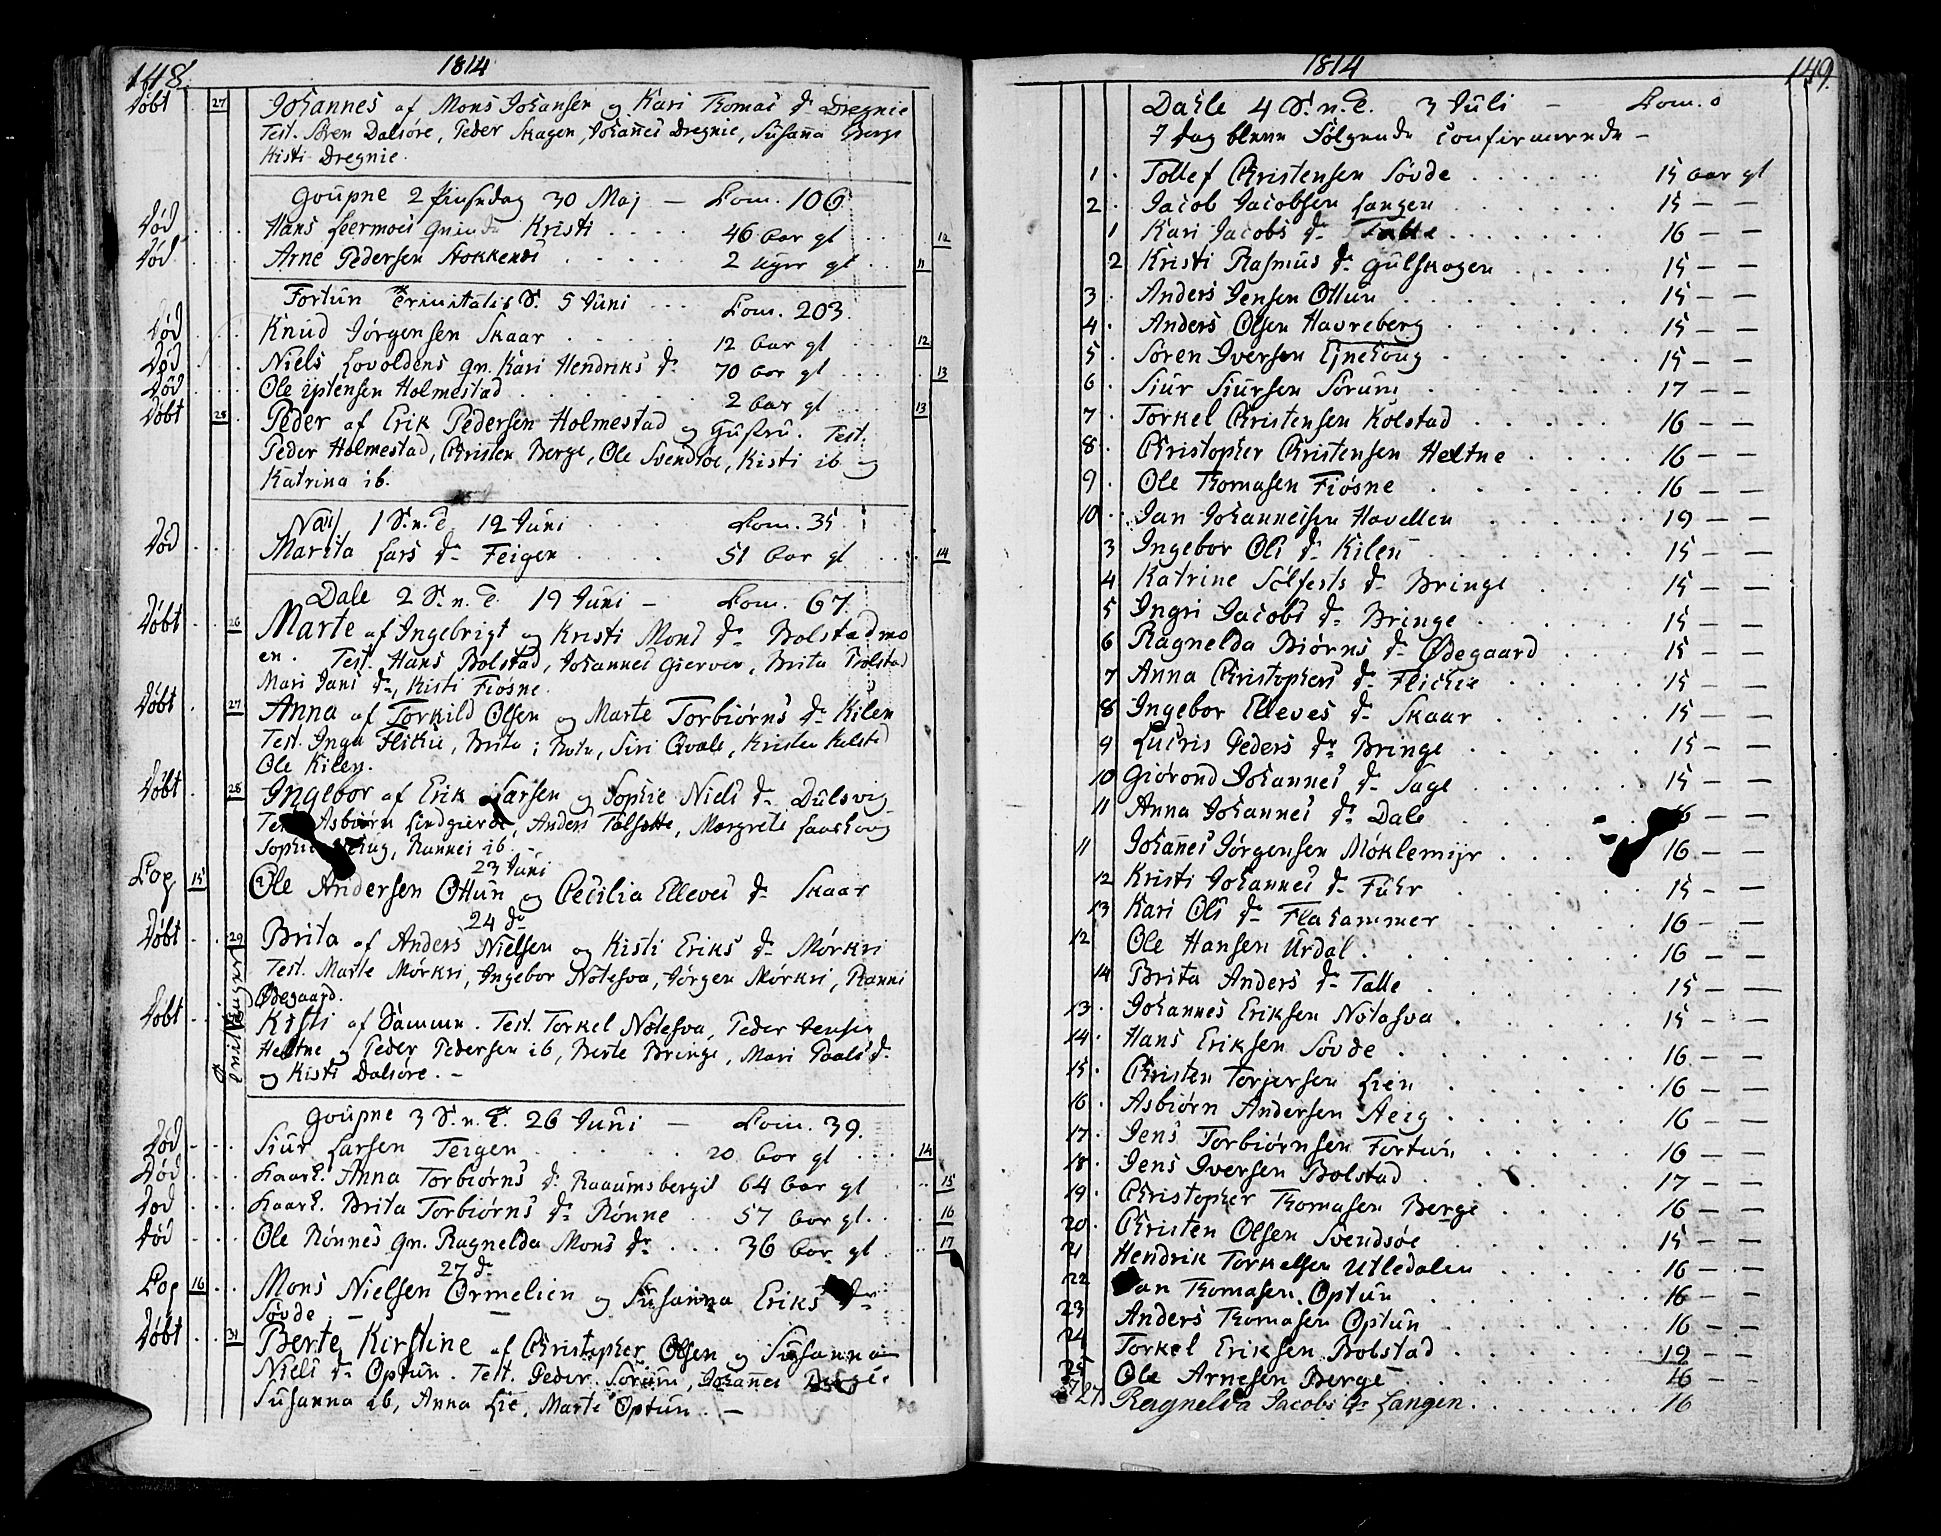 148. 1814
Døbt 27 Johannes af Mons Johansen og Kari Thomas Dr Dregnie
Test. Søren Dalsøre, Peder Skagen, Johannes Dregnie, Susana Berge
Kisti Dregnie.
Goupne 2 Pinsedag 30 Maj — Com. 106
Død Hans Leermoes Kristi 46 aar gl 12
Død Arne Pedersen Stokkenes 2 uger gl 11
Fortun Trinitatis S. 5 Juni Com. 203.
Død Knud Jørgensen Skaar 12 aar gl 12
Død Niels Lovoldens qn. Kari Hendriks Dr 70 aar gl 13
Død Ole Holmestad 2 aar gl 13
Døbt 25 Peder af Erik Pedersen Holmestad og Hustru. Test.
Peder Holmestad, Christen Berge, Ole Svendsøe, Kisti ib og
Katrina ib.
Næs 1 S. n. T. 12 Juni Com. 35
Død Marita Lars Dr Feigen 51 aar gl 14
Dale 2 S. n. T. 19 Juni — Com. 67
Døbt 26 Marte af Ingebrigt og Kristi Mons Dr Bolstadmo
en. Test. Hans Bolstad, Johannes Gierver, Brita Bolstad
Mari Jans Dr, Kisti Fiøsne.
Døbt 27 Anna af Torkild Olsen og Marte Torbiørns Dr Kilen
Test. Inga Flikie, Brita Siri Qvale, Kristen Kolstad
Ole Kilen.
Døbt 28 Ingebor af Erik Larsen og Sophie Niels Dr Dulsvig
Asbiørn Lindgierde, Anders Talsette, Margrete
Sophie Rannei ib.
23 Juni
Cop 15 Ole Andersen Ottun og Cecilia Elleves Dr Skaar
24 Dr
Døbt 29 Brita af Anders Nielsen og Kisti Eriks Dr Mørkri
Test. Marte Mørkri, Ingebor Nølesva, Jørgen Mørkri, Ranni
Ødegaard.
Døbt Tvillinger Kisti af Samme. Test. Torkel Nølesva, Peder Jensen
Heltne og Peder Pedersen ib, Berte Bringe, Mari Poals Dr
og Kisti Dalsøre. —
Goupne 3 S. n. T. 26 Juni — Com. 39.
Død Siur Larsen Teigen 20 aar gl 14
Død Anna Torbiørns Dr 64 aar gl 15
Død Brita Torbiørns Dr Rønne 57 aar gl. 16
Død Ole Rønnes qn. Ragnelda Mons Dr 36 aar gl 17
27 Dr
Cop 16 Mons Nielsen Ormelien og Susanna Eriks Dr
Søvde
Døbt 31 Berte Kirstine af Christopher Olsen og Susanna
Niels Dr Optun. Test. Peder Sørum, Johannes
Susanna ib, Anna Lie, Marte Optun. —
1814 149.
Dahle 4 S. n. T. 3 Juli — Com. 0
I dag bleve Følgende Confirmerede —
1 Tollef Christensen Søvde 15 aar gl
2 Jacob Jacobsen Langen 15 — —
1 Kari Jacobs Dr Talle 16 — —
2 Kristi Rasmus Dr Gulskogen 15 — —
3 Anders Jensen Ottun 15 — —
4 Anders Olsen Havreberg 15 — —
5 Søren Iversen 15 — —
6 Siur Siursen Sørum 17 — —
7 Torkel Christensen Kolstad 16 — —
8 Christopher Christensen Heltne 16 — —
9 Ole Thomasen Fiøsne 16 — —
10 Jan Johannessen Havellen 19 — —
3 Ingebor Ols Dr Kilen 15 — —
4 Katrine Sølfests Dr Bringe 15 — —
5 Ingri Jacobs Dr Bringe 15 — —
6 Ragnelda Biørns Dr Ødegaard 15 — —
7 Anna Christophers Dr Flickie 15 — —
8 Ingebor Elleves Dr Skaar 15 — —
9 Lucris Peders Dr Bringe 15 — —
10 Giørond Johannes Dr Sage 15 — —
11 Anna Johannes Dr Dale
11 Johannes Jørgensen Møklemyr 16 — —
12 Kristi Johannes Dr Fuhr 15 — —
13 Kari Ols Dr Flahammer 16 — —
12 Ole Hansen Urdal 16 — —
14 Brita Anders Dr Talle 15 — —
13 Johannes Eriksen Nølasva 15 — —
14 Hans Eriksen Søvde 16 — —
15 Christen Torjersen Lien 16 — —
16 Asbiørn Andersen 16 — —
17 Jens Torbiørnsen Fortun 16 — —
18 Jens Iversen Bolstad 17 — —
19 Christopher Thomasen Berge 16 — —
20 Christen Olsen Svendsøe 15 — —
21 Hendrik Torkelsen Utledalen 16 — —
22 Jan Thomasen Optun 16 — —
23 Anders Thomasen Optun 16 — —
24 Torkel Eriksen Bolstad 19 — —
25 Ole Arnesen Berge 16 — —
Ragnelda Jacobs Dr Langen 16